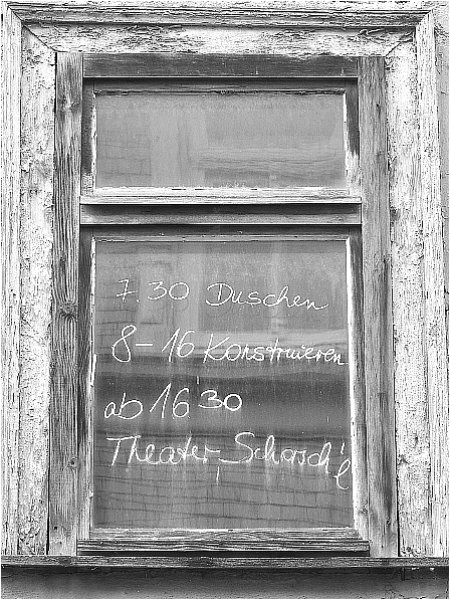 7.30 Duschen
8-16 Konstruieren
ab 16'30
Theater-Schorsch'l